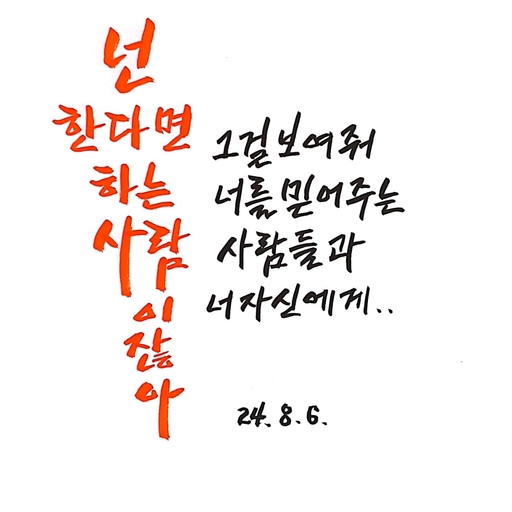 넌
한다면
하는
사람
이
잖
아
그걸 보여줘
너를 믿어주는
사람들과
너 자신에게..
24. 8. 6.